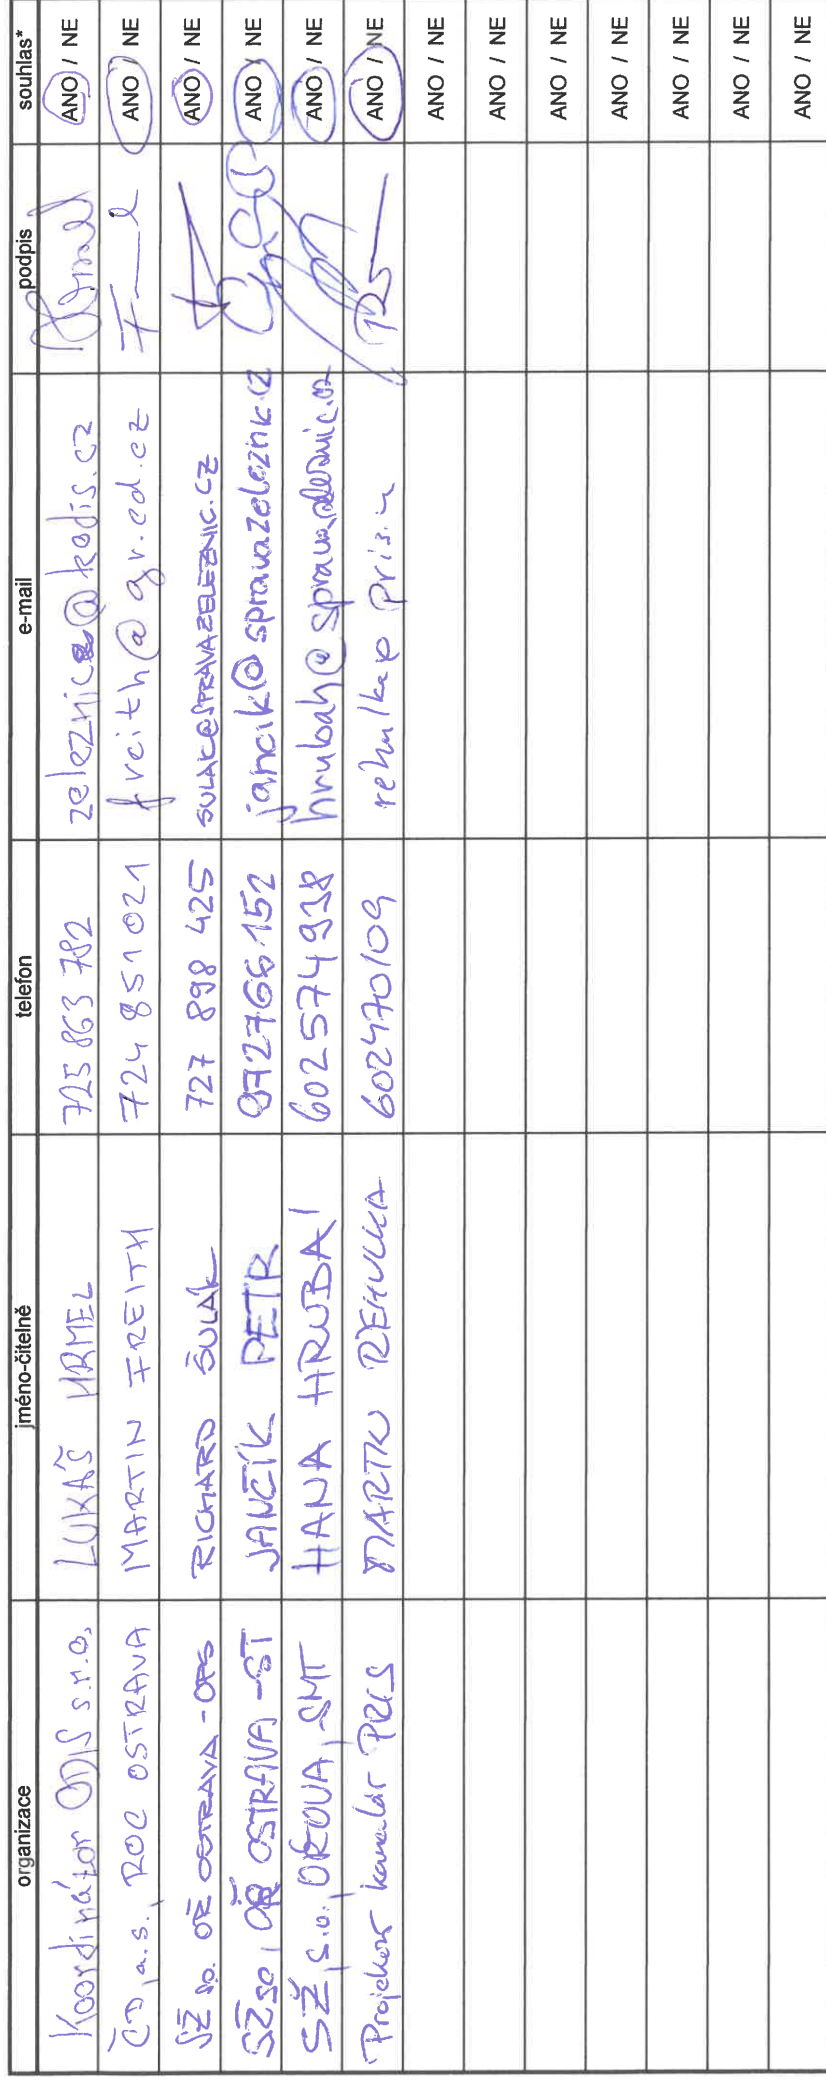 organizace jméno-čitelně telefon e-mail podpis souhlas*
Koordinátor ODIS s.r.o. LUKÁŠ HRMEL 725 863 782 zeleznice@kodis.cz ANO / NE
ČD, a.s., ROC OSTRAVA MARTIN FREITH 724 851 021 freith@gr.cd.cz ANO / NE
SŽ so. OŘ OSTRAVA - OPS RICHARD ŠULÁK 727 898 425 SULAK@SPRAVAZELEZNIC.CZ ANO / NE
SŽ so, OŘ OSTRAVA - ST JANČÍK PETR 972766152 jancik@spravazeleznic.cz ANO / NE
SŽ, s.o., OŘ OVA, SMT HANA HRUBÁ 602574938 hrubah@spravazeleznic.cz ANO / NE
Projekční kancelář PRIS MARTIN ŘEHULKA 602470109 rehulka@pris.cz ANO / NE
ANO / NE
ANO / NE
ANO / NE
ANO / NE
ANO / NE
ANO / NE
ANO / NE